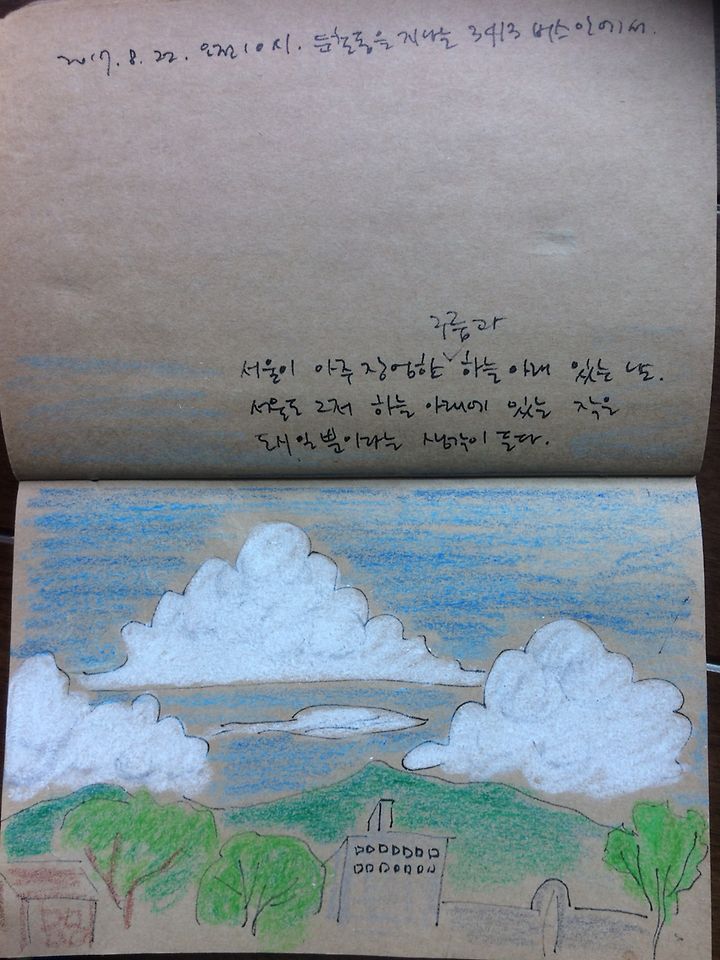 2017. 8. 22. 오전 10시. 둔촌동을 지나는 3413 버스 안에서.
구름과
서울이 아주 장엄한 ∨ 하늘 아래 있는 날.
서울도 그저 하늘 아래에 있는 작은
도시일 뿐이라는 생각이 든다.